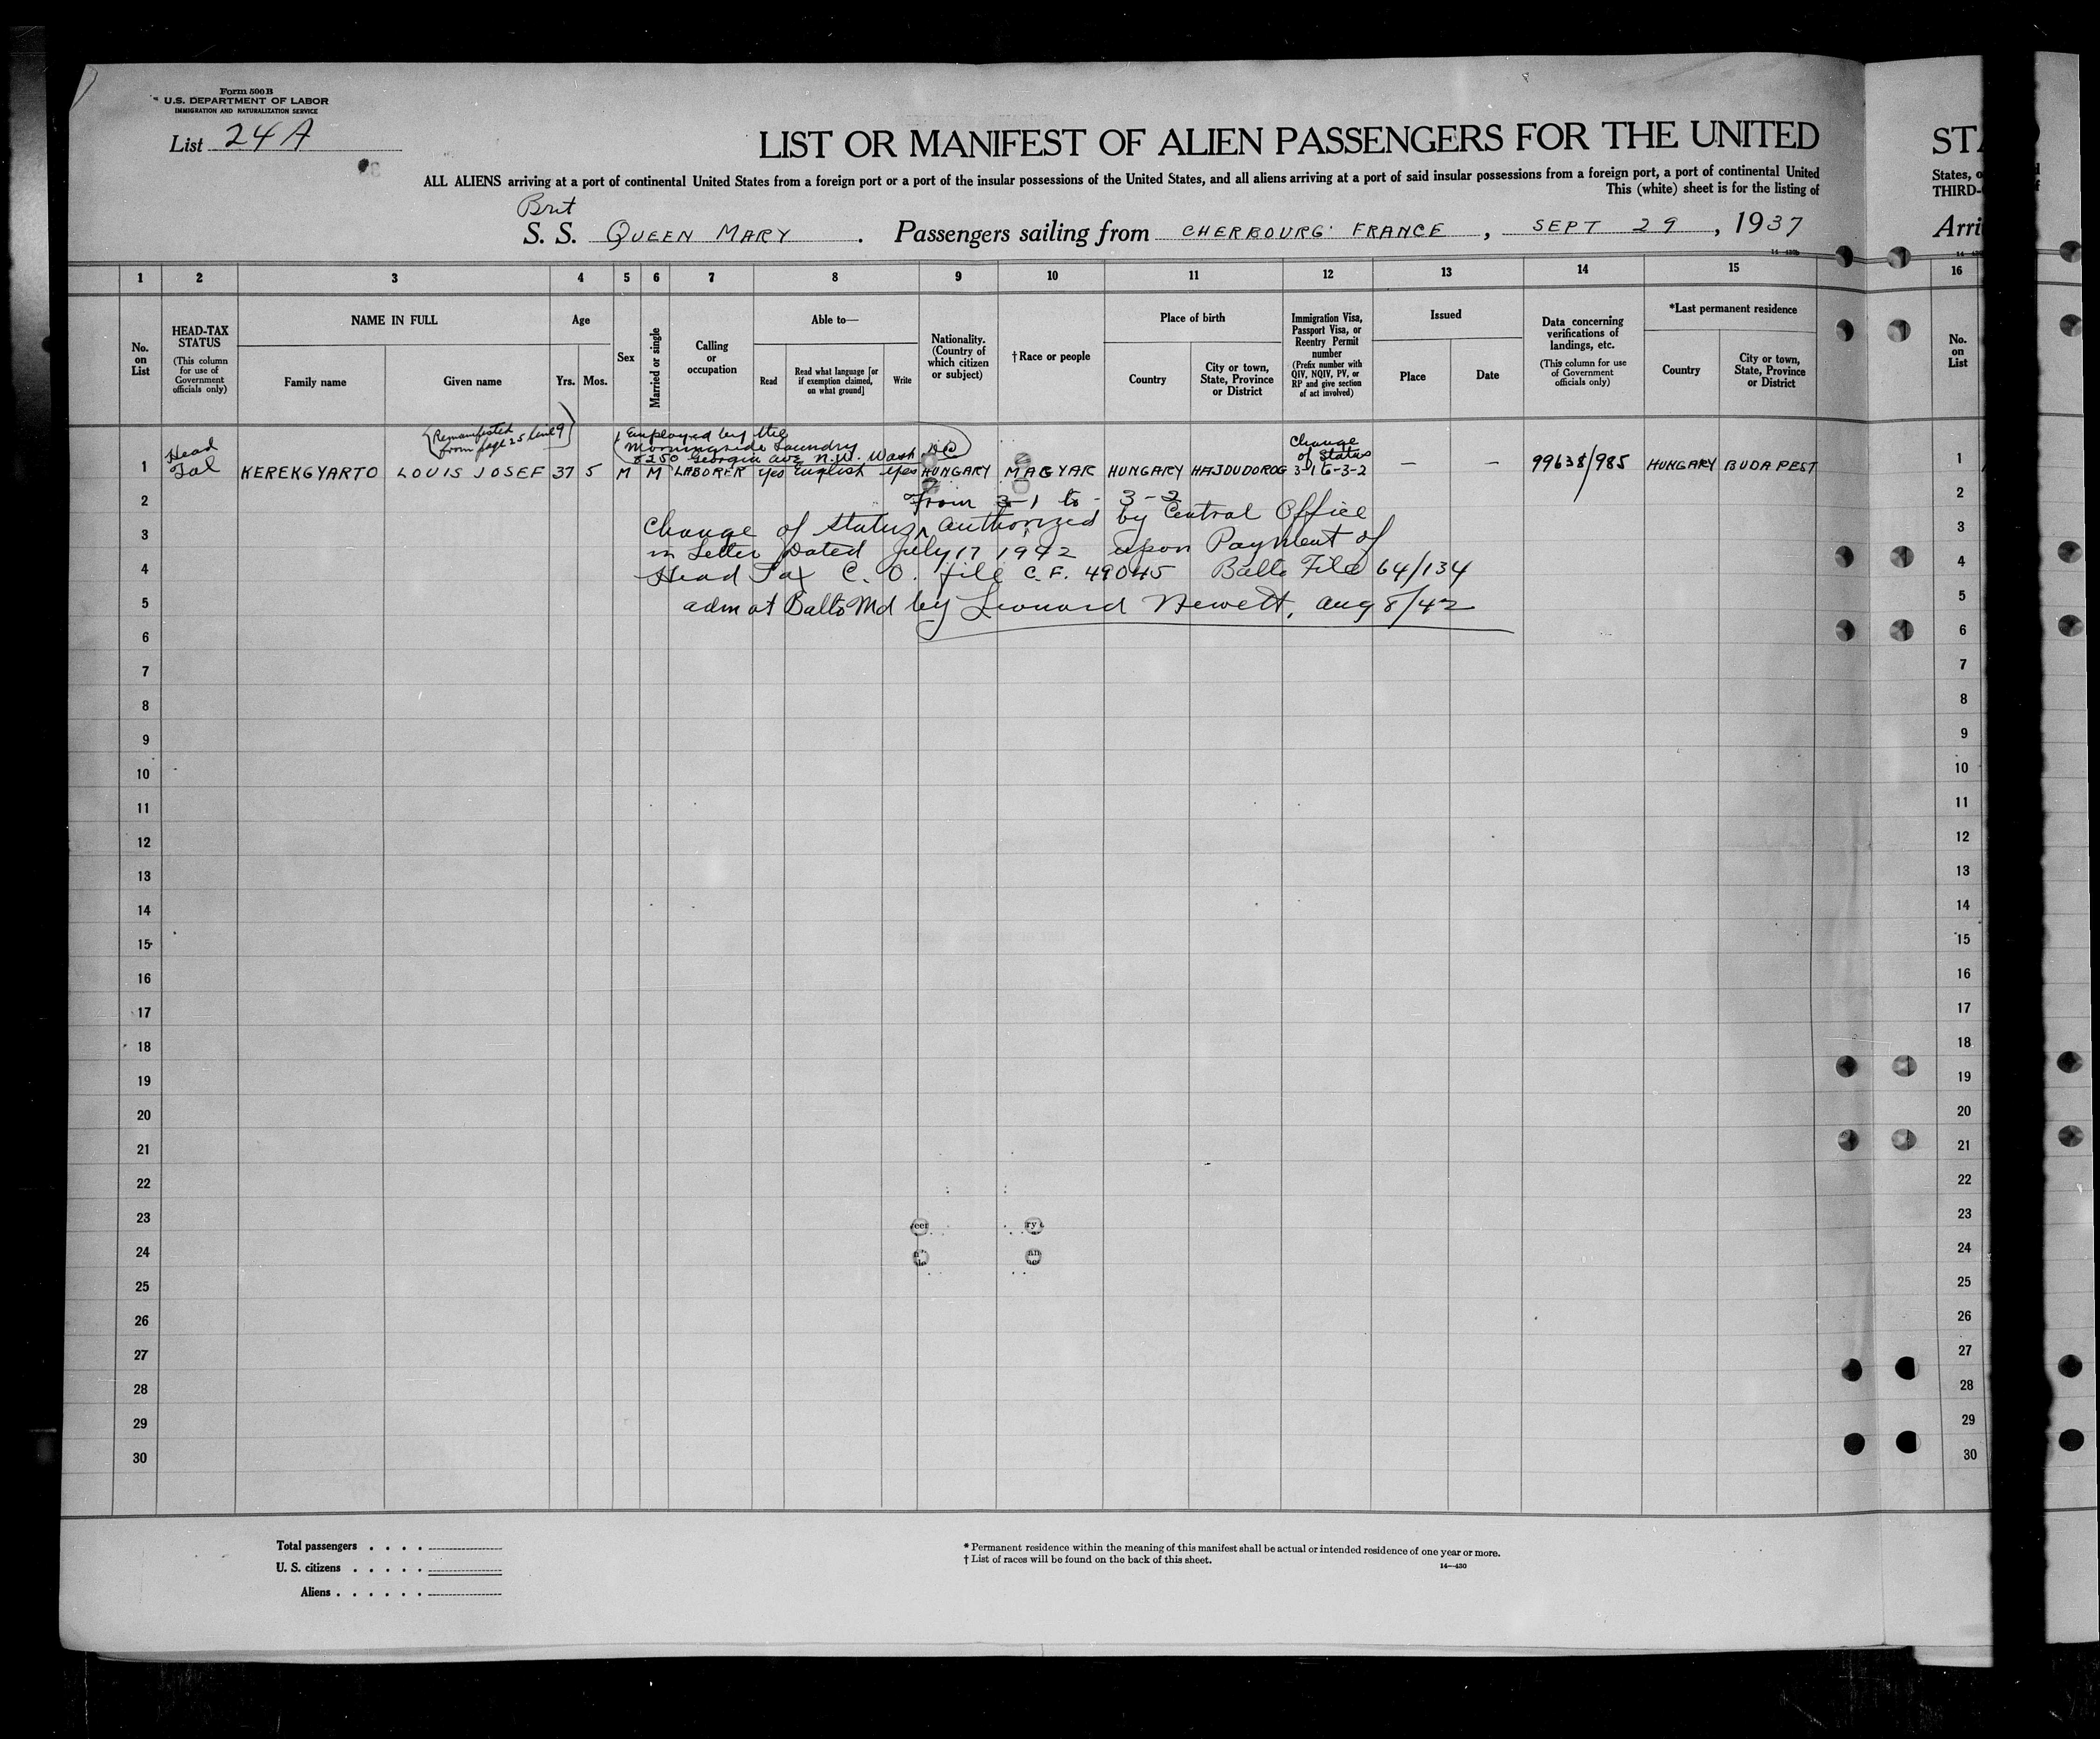 Form 500 B
U.S. DEPARTMENT OF LABOR
IMMIGRATION AND NATURALIZATION SERVICE
List 24 A
LIST OR MANIFEST OF ALIEN PASSENGERS FOR THE UNITED
ALL ALIENS arriving at a port of continental United States from a foreign port or a port of the insular possessions of the United States, and all aliens arriving at a port of said insular possessions from a foreign port, a port of continental United
This (white) sheet is for the listing of
Brit
S. S. QUEEN MARY . Passengers sailing from CHERBOURG FRANCE , SEPT 29 , 1937
States, o
THIRD-
Arri
1 2 3 4 5 6 7 8 9 10 11 12 13 14 15 16
No. on List
HEAD-TAX STATUS
(This column for use of Government officials only)
NAME IN FULL
Family name
Given name
Age
Yrs. Mos.
Sex
Married or single
Calling or occupation
Able to—
Read
Read what language [or if exemption claimed, on what ground]
Write
Nationality. (Country of which citizen or subject)
† Race or people
Place of birth
Country
City or town, State, Province or District
Immigration Visa, Passport Visa, or Reentry Permit number
(Prefix number with QIV, NQIV, PV, or RP and give section of act involved)
Issued
Place
Date
Data concerning verifications of landings, etc.
(This column for use of Government officials only)
*Last permanent residence
Country
City or town, State, Province or District
No. on List
(Remanifested from page 25 line 9)
(Employed by the
Morningside Laundry
8250 Georgia Ave N.W. Wash DC)
Change of Status
1 Head Tax KEREKGYARTO LOUIS JOSEF 37 5 M M LABORER yes English yes HUNGARY MAGYAR HUNGARY HAJDUDOROG 3-1 to-3-2 — — 99638/985 HUNGARY BUDAPEST 1
2 From 3-1 to - 3-2 2
3 Change of status authorized by Central Office 3
in Letter Dated July 17 1942 upon Payment of
4 Head Tax C. O. file C.F. 49045 Balto File 64/134 4
5 adm at Balto Md by Leonard Hewett, Aug 8/42 5
6 6
7 7
8 8
9 9
10 10
11 11
12 12
13 13
14 14
15 15
16 16
17 17
18 18
19 19
20 20
21 21
22 22
23 23
24 24
25 25
26 26
27 27
28 28
29 29
30 30
Total passengers . . . .
U. S. citizens . . . . .
Aliens . . . . . .
* Permanent residence within the meaning of this manifest shall be actual or intended residence of one year or more.
† List of races will be found on the back of this sheet.
14—430